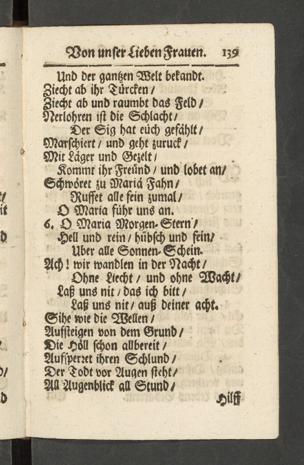 Von unser Lieben Frauen. 139
Und der gantzen Welt bekandt.
Ziecht ab ihr Türcken /
Ziecht ab und raumbt das Feld /
Verlohren ist die Schlacht /
Der Sig hat eüch gefählt /
Marschiert / und geht zuruck /
Mit Läger und Gezelt /
Kommt ihr Freünd / und lobet an /
Schwöret zu Mariä Fahn /
Ruffet alle sein zumal /
O Maria führ uns an.
6. O Maria Morgen-Stern /
Hell und rein / hübsch und fein /
Uber alle Sonnen-Schein.
Ach! wir wandlen in der Nacht /
Ohne Liecht / und ohne Wacht /
Laß uns nit / das ich bitt /
Laß uns nit / auß deiner acht.
Sihe wie die Wellen /
Aufsteigen von dem Grund /
Die Höll schon allbereit /
Aufsperret ihren Schlund /
Der Todt vor Augen steht /
All Augenblick all Stund /
Hilff